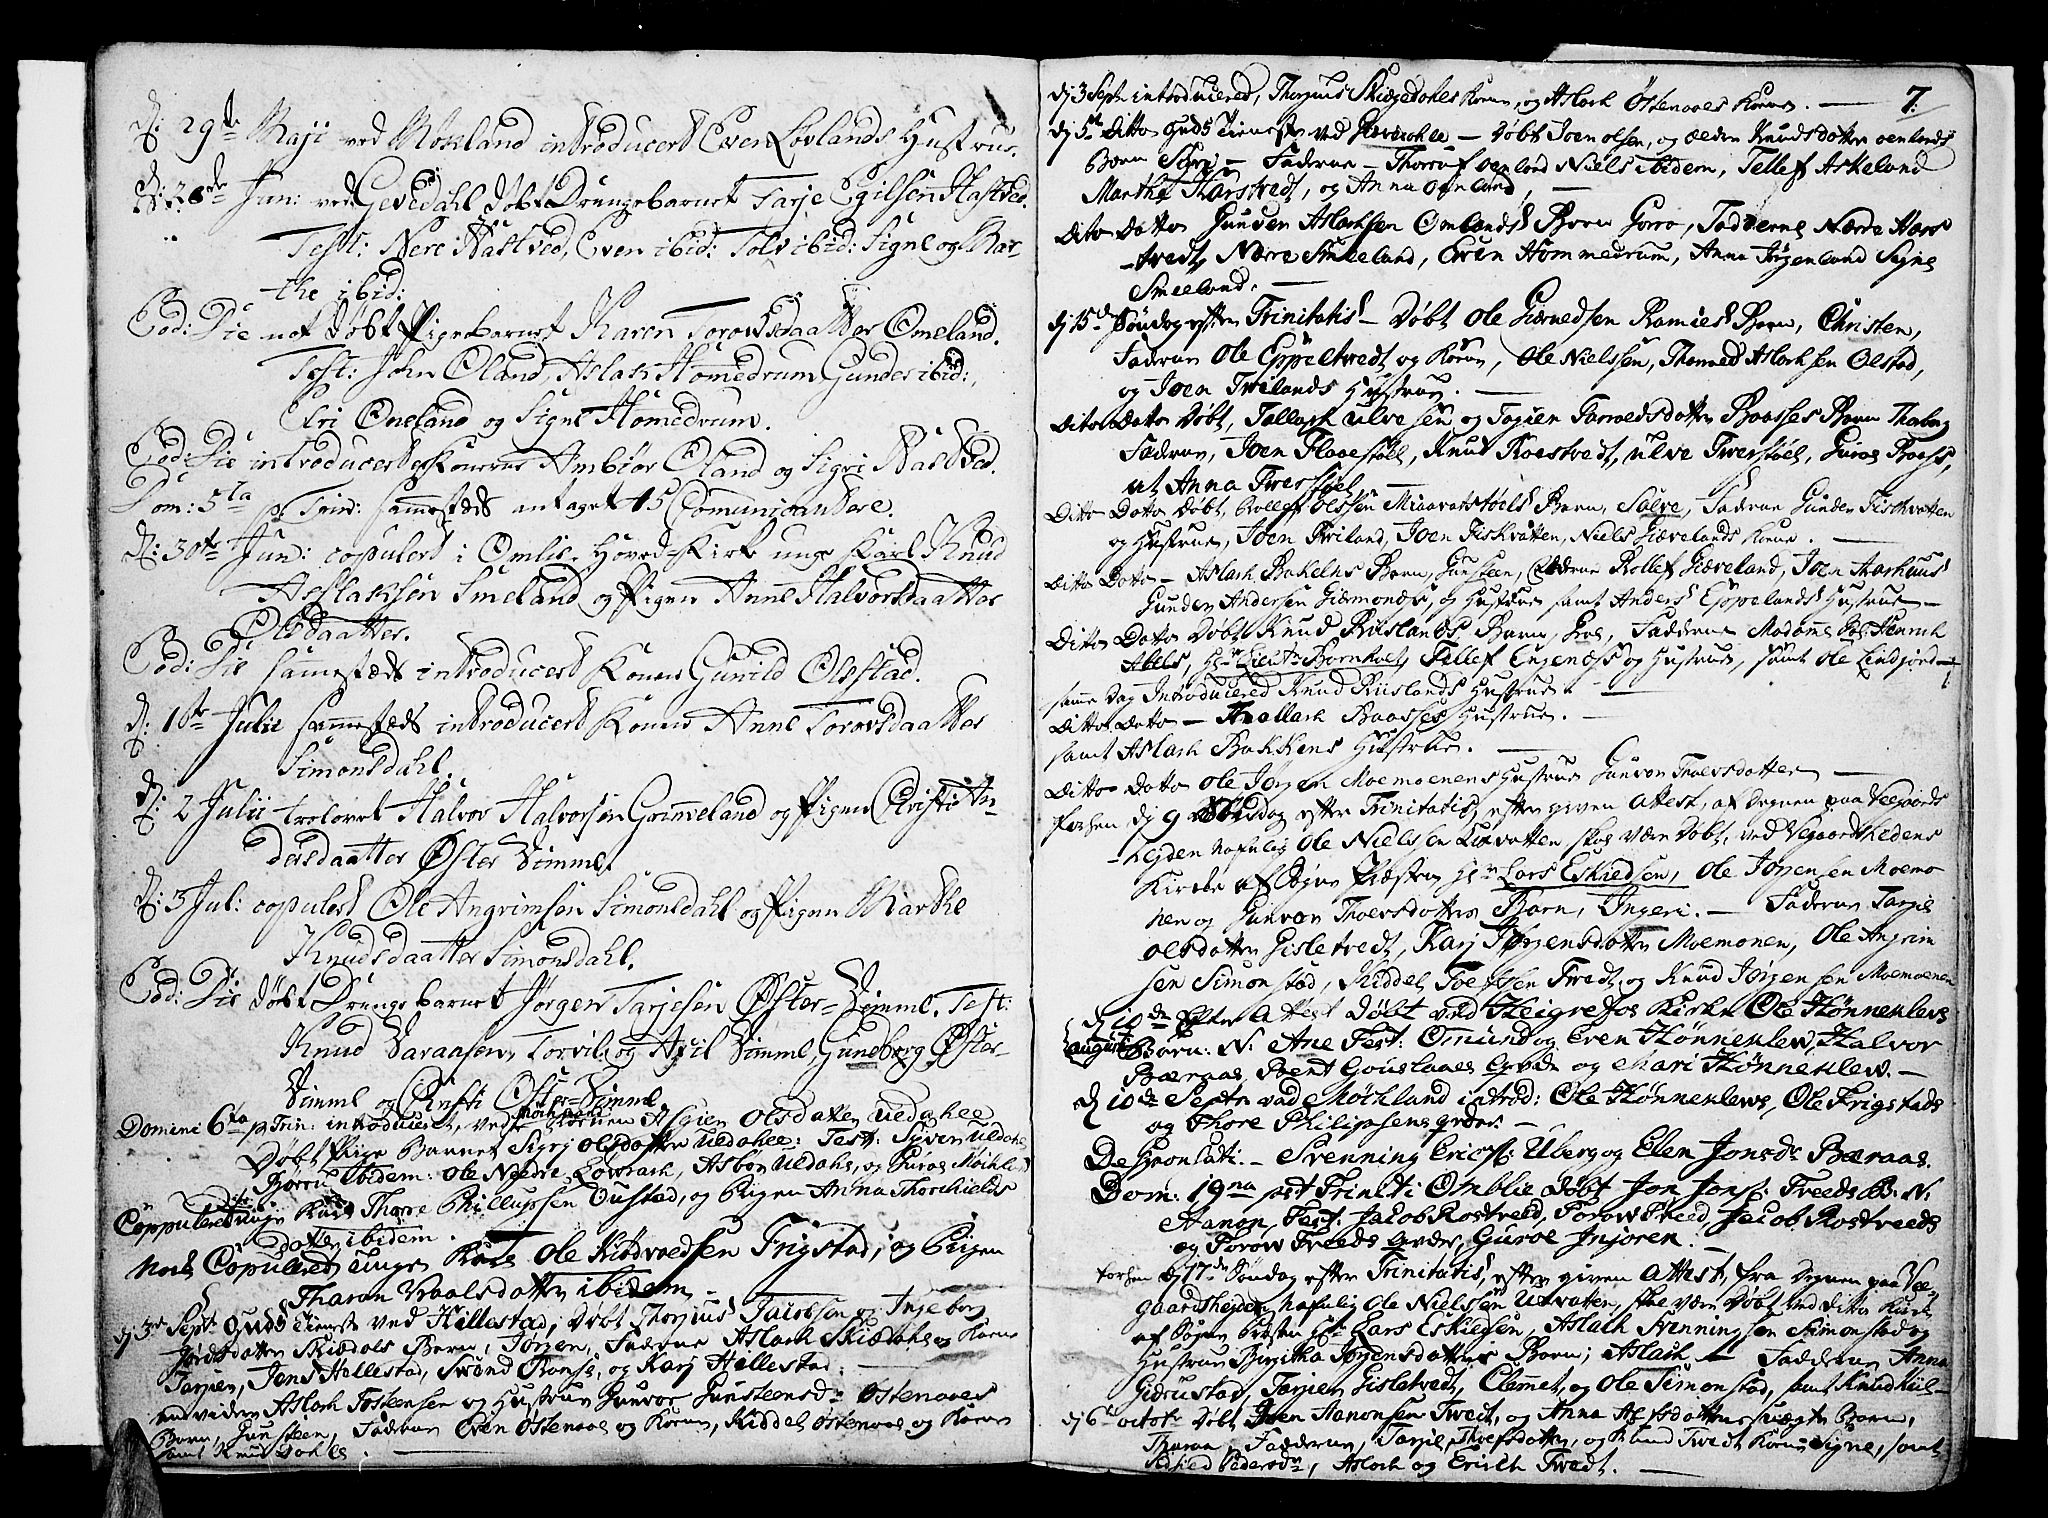 D: 29de Maji ved Mokland introducert Even Lovlands Hustrue.
D: 26de Jun: ved Gevedahl døbt Drengebarnet Tarje Egilsøn Hastved.
Test: Nere Hastved, Even ibid: Tolv ibid: Signe og Mar-
the ibid:
Eod: Die nok døbt Pigebarnet Karen Torovsdaatter Omeland.
Test: John Oland, Aslak Homedrum, Gunder ibid:,
Eri Omeland og Signe Homedrum.
Eod: Die introducert Konerne Ambiør Oland og Sigri Hastved.
Dom: 5ta p. Trin: sammesteds antaget 15 Comunicantere.
D: 30te Jun: copulert i Omlie Hoved-Kirke unge Karl Knud
Aslaksøn Smeland og Pigen Anne Halvorsdaatter
Olsdaatter.
Eod: Die sammesteds introducert Konen Gunild Olsstad.
D: 1ste Julii sammesteds introducert Konen Anne Torovsdaatter
Simonsdahl.
D: 2 Julii trolovet Halvor Halvorsøn Grimeland og Pigen Christi An-
dersdaatter Øster Dimml.
D: 3 Jul: copulert Ole Angrimsøn Simonsdahl og Pigen Marthe
Knudsdaatter Simonsdahl.
Eod: Die døbt Drengebarnet Jørgen Tarjesøn Øster-Dimml. Test:
Knud Saraansøn, Torvil og Asil Dimml, Gunborg Øster-
Dimml og Christi Øster-Dimml.
Domini 6ta p Trin: introduceret, ved Mokland Konen Asgien Olsdatter Uedahee
Døbt Pige Barnet Sigrj Olsdatter Uedahee: Test: Syven Uedahl
Børru Ibidem: Ole Nedre Lowrach, Asbør Uedahl, og Guroe Mokland
Copuleret unge Karl Thore Phillupsen Oustad, og Pigen Anna Thorchields
datter ibidem.
Nock Copuleret unge Karl Ole Kiødvedsen Frigstad, og Pigen
Tharan Roalsdatter ibidem
dj 3de Septr Guds Tieneste ved Hillestad, Døbt Thorjus Jacobsøn og Ingeborg
Jørdsdatter Skiædals Barn, Jørgen, Faderne Aslach Skiædahl og Kone
Tarjen, Jens Hellestad, Svend Ramse, og Karj Hellestad.
end viidere Aslach Tosteensen og Hustrue Gunvor Gunsteensdr Ostenaaes
Barn, Gunsteen, Fadderne Even Ostenaae og Kone, Kiddel Ostenaae og Kone
samt Knud Dahls.
7.
dj 3 Septr introducered, Thorjuus Skiægedahls Kone, og Aslach Østenaaes Kone.
dj 5te Ditto Guds Tieneste ved Gievedahl — Døbt Joen Olsen, og Ælden Knudsdatter Oenlands
Barn Sigrj — Fadderne — Thoruf Oenland Niels Ibidem, Tellef Askeland
Martha Harstvedt, og Anna Oenland,
Dito Dato Gunden Aslachsen Omlands Barn Gorro, Fadderne Nærre Hars
-tvedt, Nærre Smeeland, Even Hommedrum, Anna Irgenland Signe
Smeeland.
dj 15de Søndag efter Trinitatis — Døbt Ole Giermedsen Ramses Barn, Christen,
Fadderne Ole Eppeltvedt og Kone, Ole Nielssen, Themmed Aslachsen Olstad,
og Joen Tveitlands Hustrue.
Dito Dato Døbt, Tallach Ulvesen og Togien Tarroldsdatter Baasses Barn Thaborg
Fadderne, Joen Flaaestøel, Knud Roestvedt, Ulve Tverstøel, Guroe Baass,
ut Anna Tverstøel.
Ditto Dato Døbt Rollef Olssen Miaavatstøels Barn, Salve, Fadderne Gunder Fiskvatten
og Hustrue, Joen Tveiland, Joen Fiskvatten, Niels Giævelands Kone.
Ditto Dato — Aslach Bakelns Barn, Gunsteen, Fadderne Rollef Giæveland, Joen Aarhuus
Gunder Andersen Giermonæs, og Hustrue samt Anders Eppelands Hustrue —
Ditto Dato Døbt Knud Riislands Barn, Eve, Fadderne Madame Hench
Abels, Hr Lieutn Bornholt, Tellef Engenæs og Hustrue, samt Ole Lindjord —
samme Dag Introducered Knud Riislands Hustrue.
Ditto Dato — Thallach Baasses Hustrue.
samt Aslach Bakkens Hustrue.
Ditto Dato Ole Jørgen Moemoenens Hustrue Gunvor Thoersdatter —
forhen dj 9 Søndag efter Trinitatis, efter given Attest, af Degnen paa Veegaards
-hejden nafnlig Ole Nielsen Uxvatten skal være Døbt, ved Vegaardshedens
Kirche af Sogne Præsten Hr Lars Eskiedsen, Ole Jørgensen Moemo
nen og Gunvor Thoersdatters Barn, Ingeri. — Fadderne Tarjei
Olsdatter Gisletvedt, Karj Jørgensdatter Moemonen, Ole Angrim
sen Simonstad, Kiddel Toessen Tvedt, og Knud Jørgensen Moemoenen
D 10de augusti Efter Attest Døbt ved Heigrefos Kirke Ole Hønneklevs
Barn: N: Ane Test: Omund og Even Hønneklew, Halvor
Bæraas, Brent Gouslaaes qvde og Mari Hønneklew. —
D 10de Septr ved Mockland introd: Ole Hønneklevs, Ole Frigstads
og Thore Philipsens qvder. —
De Copulati. — Svenning Erics: Uberg og Elen Jonsdr Bæraas.
Dom: 19na pst Triniti Omblie Døbt Jon Jons: Treeds B: N:
Aanon, Test: Jacob Rostveed, Torow Treed, Jacob Rostveeds
og Torow Treeds qvder, Guroe Injoren.
forhen D 17de Søndag efter Trinitatis, efter given Attest, fra Degnen paa Ve-
gaardshejden, nafnlig Ole Nielsen Uxvatten, skal være Døbt ved ditto Kirke
af Sogne Præsten Hr Lars Eskiedsen, Aslach Svenningsen Simonstad og
Hustrue Birgitha Jørgensdatters Barn; Aslach — Fadderne Anna
Gierustad, Tarjei Gisletvedt, Clemmet, og Ole Simonstad, samt Knud Kiil-
dj 6te octobr Døbt Joen Aanonsen Tvedt, og Anna Alfsdatters uægte Barn,
Tharan, Fadderne, Tarjei, Thoefsdatter, og Aslaud Tvedt Kone Signe, samt
Sidsed Pedersdr, Aslach og Erich Tvedt. —